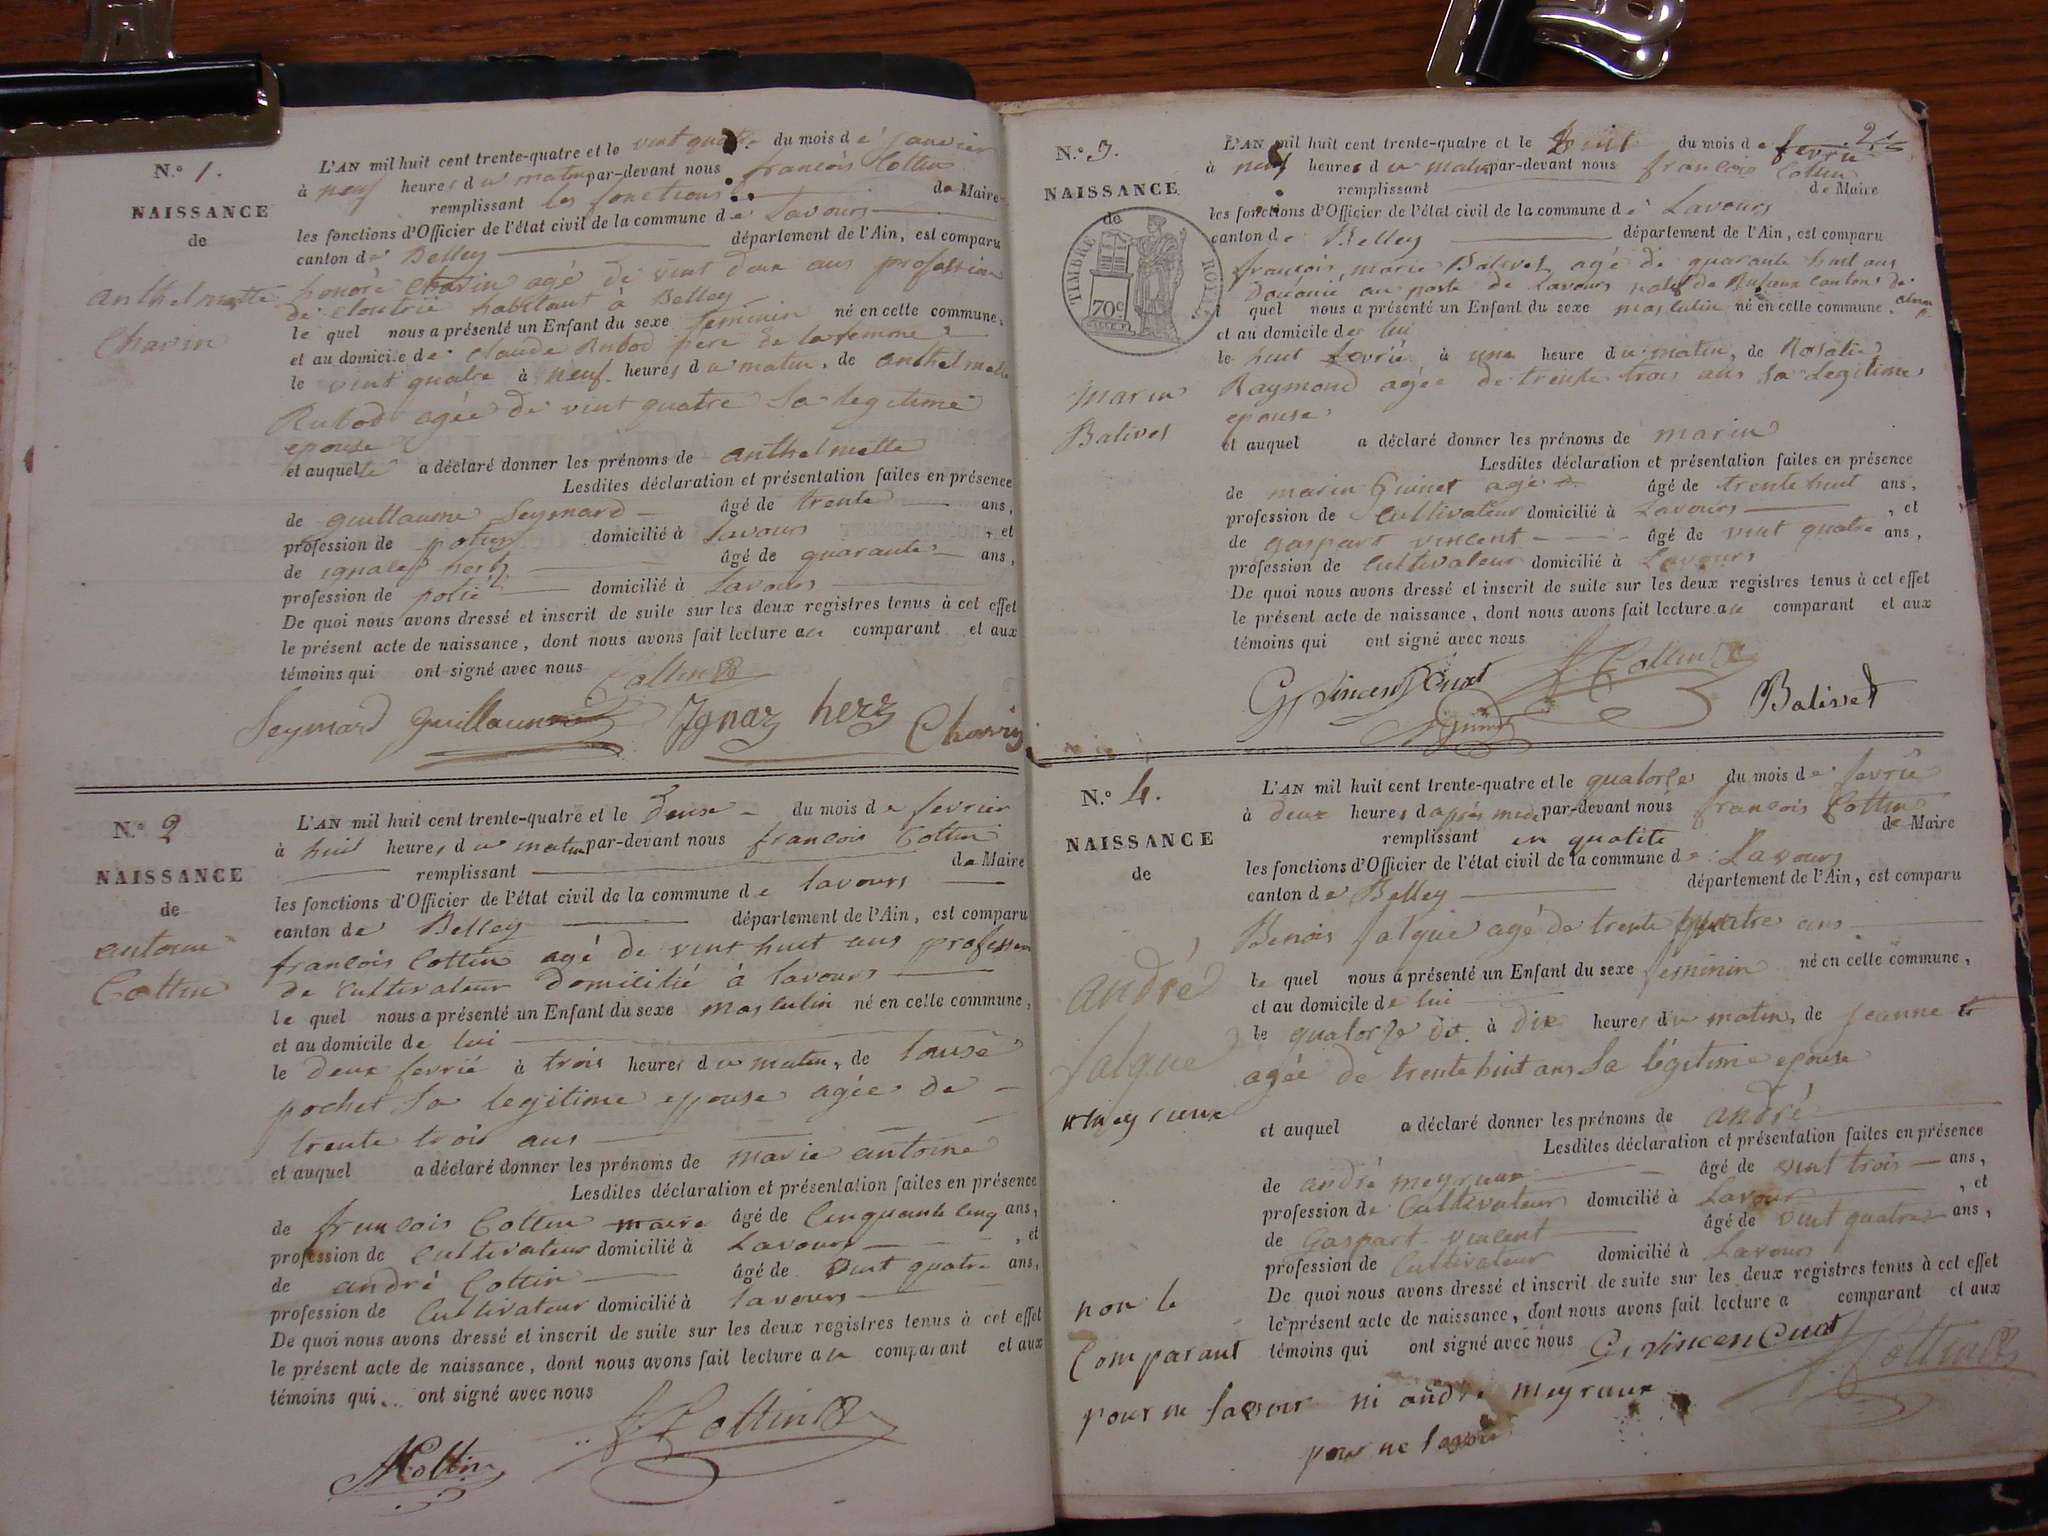 N.º 1.
NAISSANCE
de
anthelmette
Charin
L'AN mil huit cent trente-quatre et le vint quatre du mois de janvier
à neuf heures du matin par-devant nous françois Cottin
remplissant les fonctions de Maire
les fonctions d'Officier de l'état civil de la commune de Lavours
canton de Belley département de l'Ain, est comparu
honoré Charin agé de vint deux ans profession
de cloutrié habitant à Belley
le quel nous a présenté un Enfant du sexe feminin né en cette commune,
et au domicile de claude Rubod pere de la femme
le vint quatre à neuf heures du matin, de anthelmette
Rubod agée de vint quatre sa legitime
epouse
et auquel a déclaré donner les prénoms de anthelmette
Lesdites déclaration et présentation faites en présence
de guillaume Seymard âgé de trente ans,
profession de potier domicilié à Lavours, et
de herz âgé de quarante ans,
profession de potié domicilié à Lavours
De quoi nous avons dressé et inscrit de suite sur les deux registres tenus à cet effet
le présent acte de naissance, dont nous avons fait lecture au comparant et aux
témoins qui ont signé avec nous
Cottin
Seymard guillaume Ignaz herz Charin
N.º 2
NAISSANCE
de
antoine
Cottin
L'AN mil huit cent trente-quatre et le deux du mois de fevrier
à huit heures du matin par-devant nous françois Cottin
remplissant de Maire
les fonctions d'Officier de l'état civil de la commune de lavours
canton de Belley département de l'Ain, est comparu
françois Cottin agé de vint huit ans profession
de cultivateur domicilié à lavours
le quel nous a présenté un Enfant du sexe masculin né en cette commune,
et au domicile de lui
le deux fevrié à trois heures du matin, de louise
pochet sa legitime epouse agée de
trente trois ans
et auquel a déclaré donner les prénoms de marie antoine
Lesdites déclaration et présentation faites en présence
de francois Cottin maire âgé de Cinquante cinq ans,
profession de cultivateur domicilié à Lavours, et
de andré Cottin âgé de vint quatre ans,
profession de Cultivateur domicilié à lavours
De quoi nous avons dressé et inscrit de suite sur les deux registres tenus à cet effet
le présent acte de naissance, dont nous avons fait lecture au comparant et aux
témoins qui ont signé avec nous
f Cottin
A Cottin
N.º 3.
NAISSANCE
de
TIMBRE ROYAL
70c
marin
Balivet
21
L'AN mil huit cent trente-quatre et le huit du mois de fevrié
à neuf heures du matin par-devant nous françois Cottin
remplissant de Maire
les fonctions d'Officier de l'état civil de la commune de Lavours
canton de Belley département de l'Ain, est comparu
françois marie Balivet agé de quarante huit ans
douanié au poste de Lavours natif de Rufieux canton de
l quel nous a présenté un Enfant du sexe masculin né en cette commune.
et au domicile de lui
le huit fevrié à une heure du matin, de Rosalie
Raymond agée de trente trois ans sa legitime
epouse
et auquel a déclaré donner les prénoms de marin
Lesdites déclaration et présentation faites en présence
de marin Guinet agé âgé de trente huit ans,
profession de Cultivateur domicilié à Lavours, et
de gaspart vincent âgé de vint quatre ans,
profession de Cultivateur domicilié à Lavours
De quoi nous avons dressé et inscrit de suite sur les deux registres tenus à cet effet
le présent acte de naissance, dont nous avons fait lecture au comparant et aux
témoins qui ont signé avec nous
f Cottin
G, Vincen Cuat Balivet
N.º 4.
NAISSANCE
de
andré
falque
L'AN mil huit cent trente-quatre et le quatorze du mois de fevrié
à deux heures d après midi par-devant nous françois Cottin
remplissant en qualité de Maire
les fonctions d'Officier de l'état civil de la commune de Lavours
canton de Belley département de l'Ain, est comparu
Benois falque agé de trente quatre ans
le quel nous a présenté un Enfant du sexe féminin né en cette commune,
et au domicile de lui
le quatorze dit à dix heures du matin, de Jeanne
agée de trente huit ans sa légitime epouse
et auquel a déclaré donner les prénoms de andré
Lesdites déclaration et présentation faites en présence
de andré meyrieux âgé de vint trois ans,
profession de Cultivateur domicilié à Lavours, et
de Gaspart vincent âgé de vint quatre ans,
profession de Cultivateur domicilié à Lavours
De quoi nous avons dressé et inscrit de suite sur les deux registres tenus à cet effet
le présent acte de naissance, dont nous avons fait lecture a comparant et aux
témoins qui ont signé avec nous G, Vincen Cuat f Cottin
non le
Comparant
pour ne savoir ni andré meyrieux
pour ne savoir